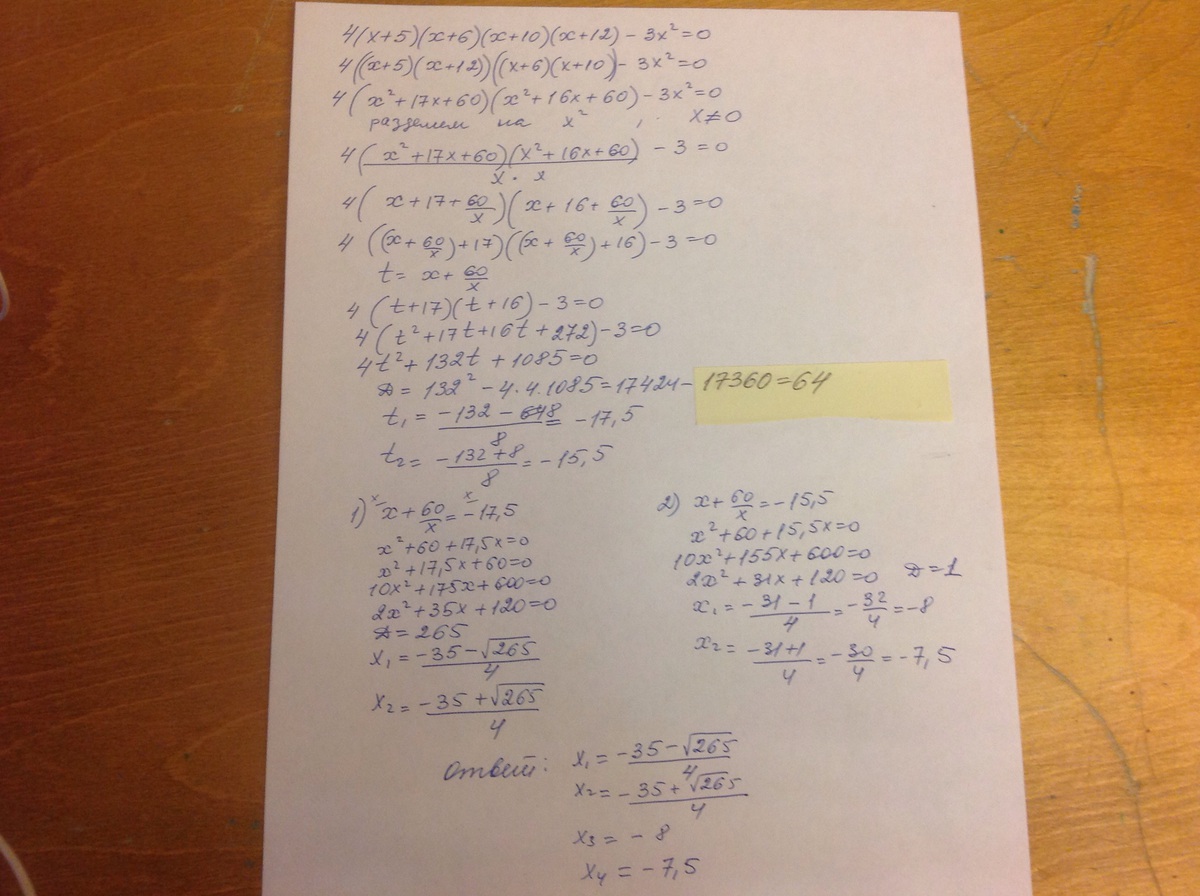 4(x+5)(x+6)(x+10)(x+12) - 3x²=0
4((x+5)(x+12))((x+6)(x+10)) - 3x²=0
4(x²+17x+60)(x²+16x+60) - 3x²=0
разделим на x², x≠0
4(x²+17x+60)(x²+16x+60)/(x·x) - 3 = 0
4(x+17+60/x)(x+16+60/x) - 3=0
4((x+60/x)+17)((x+60/x)+16) - 3=0
t= x+60/x
4(t+17)(t+16) - 3=0
4(t²+17t+16t+272) - 3=0
4t²+132t+1085=0
D = 132² - 4·4·1085=17424 - 17360=64
t₁ = (-132 - 8)/8 = -17,5
t₂= (-132+8)/8 = -15,5
1) x+60/x = -17,5
x²+60+17,5x=0
x²+17,5x+60=0
10x²+175x+600=0
2x²+35x+120=0
D=265
x₁ = (-35-√265)/4
x₂ = (-35+√265)/4
2) x+60/x = -15,5
x²+60+15,5x=0
10x²+155x+600=0
2x²+31x+120=0 D=1
x₁ = (-31-1)/4 = -32/4 = -8
x₂ = (-31+1)/4 = -30/4 = -7,5
Ответ: x₁ = (-35-√265)/4
x₂ = (-35+√265)/4
x₃ = -8
x₄ = -7,5